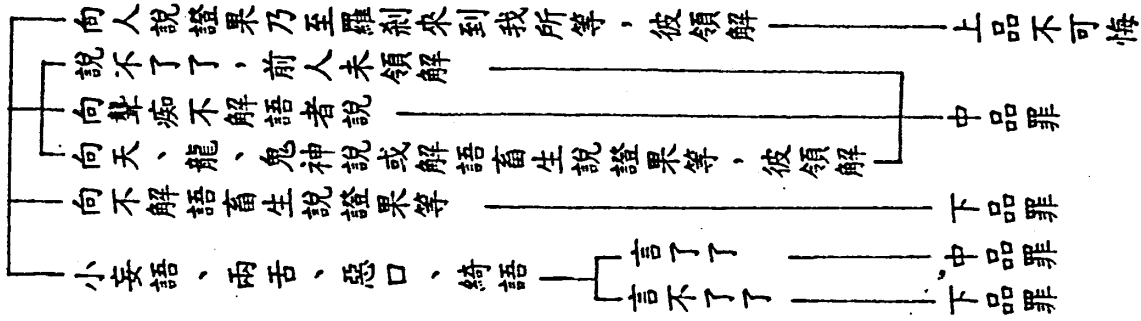 向人說證果乃至羅剎來到我所等，彼領解
上品不可悔
說不了了，前人未領解
向聾痴不解語者說
中品罪
向天、龍、鬼神說或解語畜生說證果等，彼領解
向不解語畜生說證果等
下品罪
小妄語、兩舌、惡口、綺語
言了了
中品罪
言不了了
下品罪